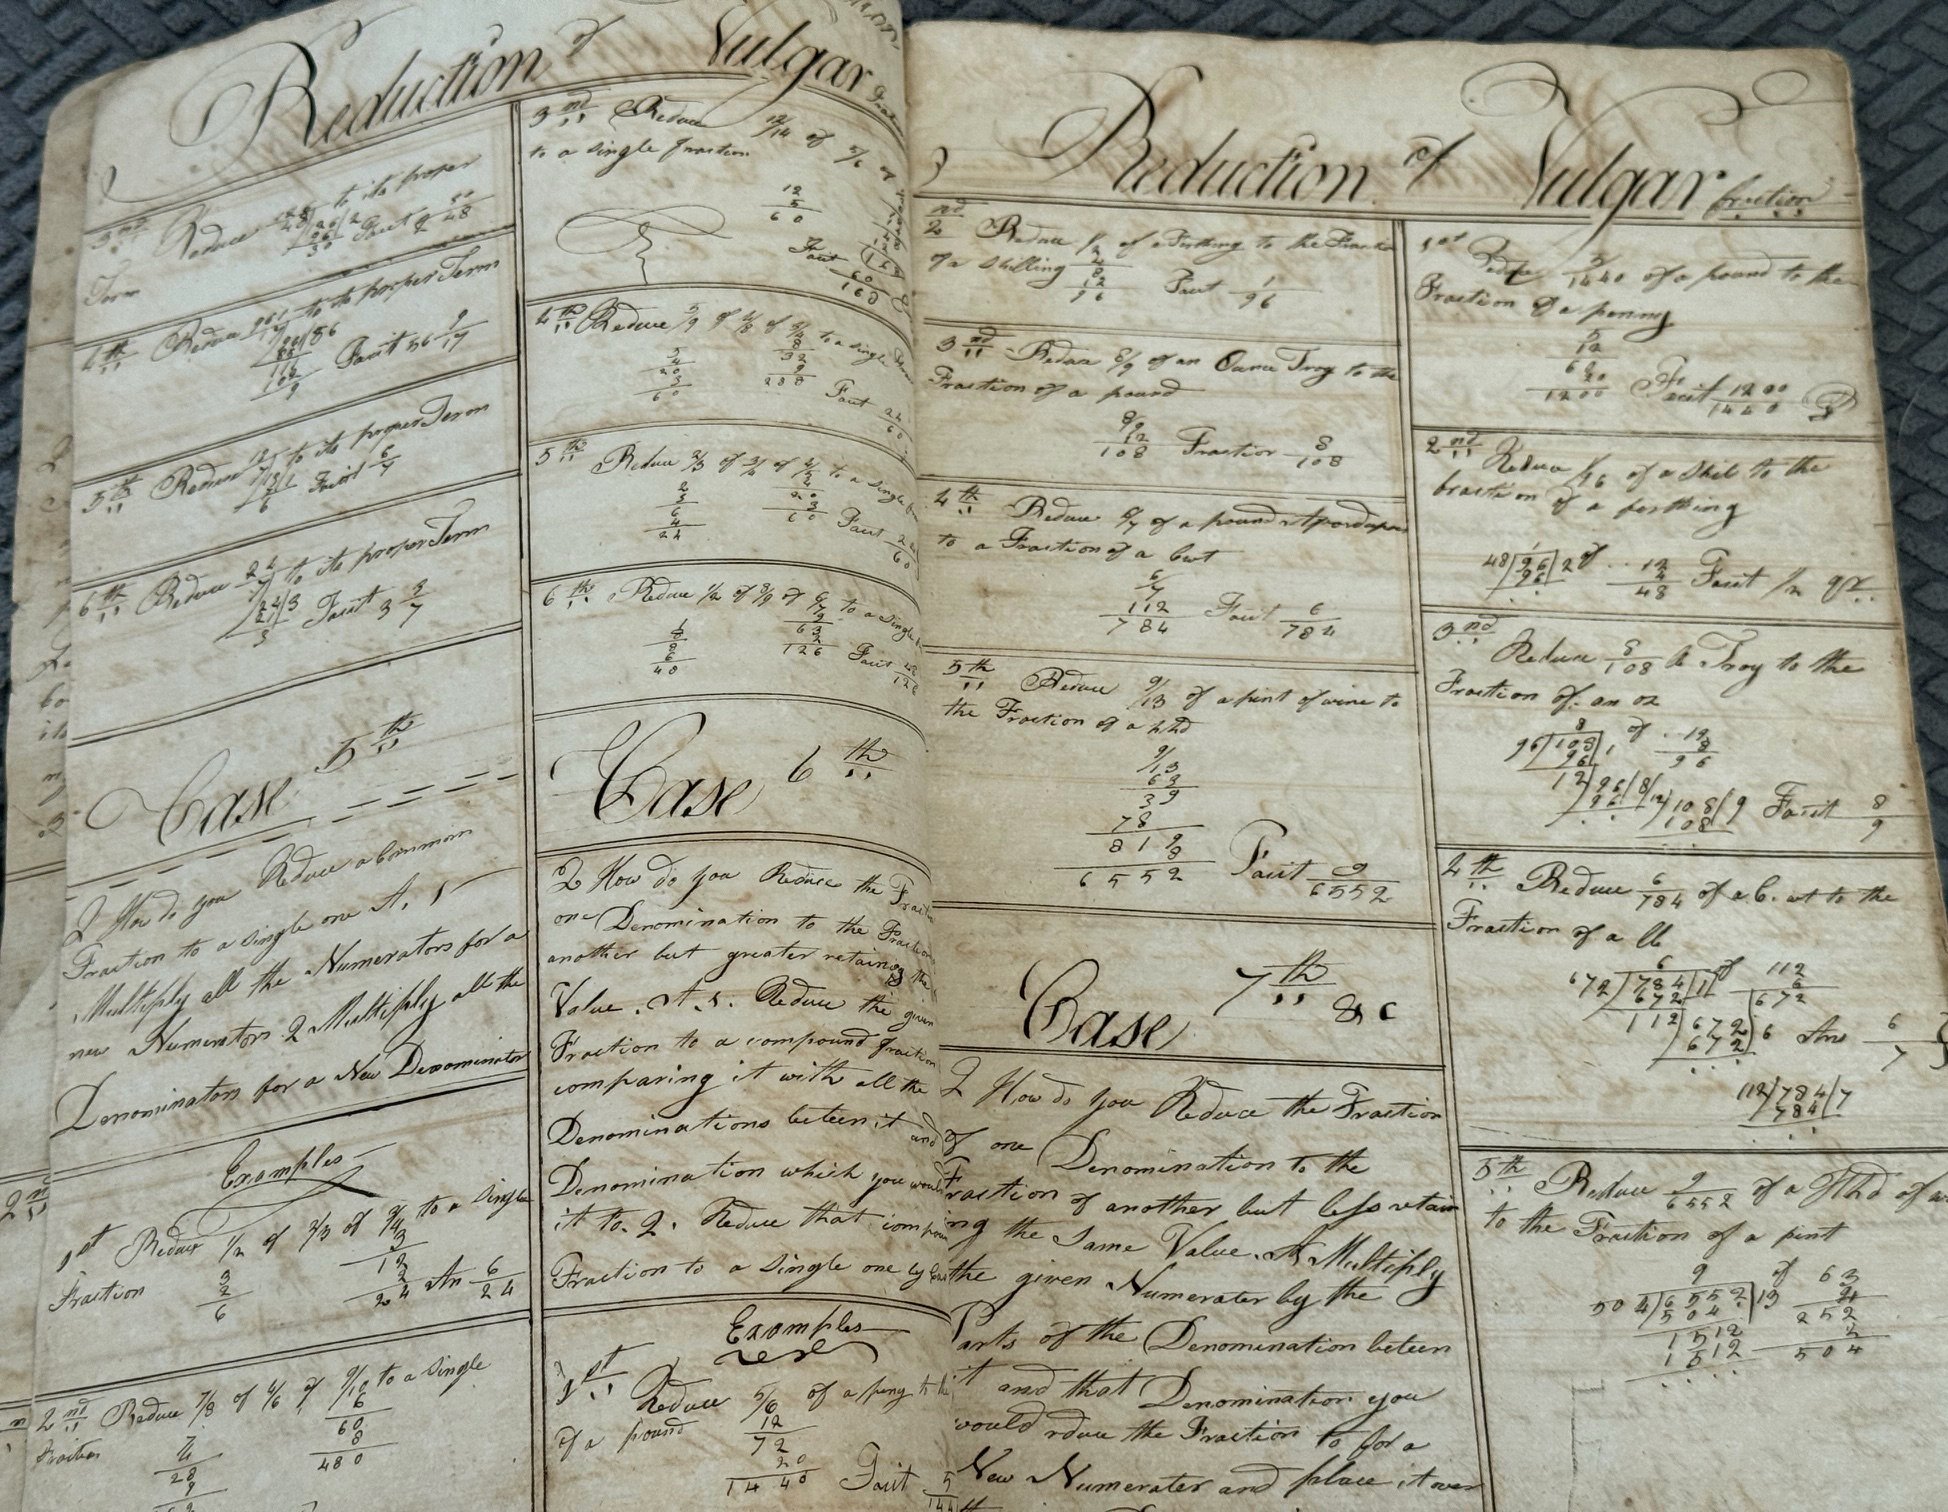 Reduction of Vulgar
Reduce to its proper
Facit 2
Term
4th Reduce to its proper Term
Facit 56 9/17
5th Reduce to its proper Term
Facit
6th Reduce 24/7 to its proper Term
24 3
21
3
Facit 3 3/7
Case 5th
Q How do you Reduce a Common
Fraction to a single one A. 1
Multiply all the Numerators for a
new Numerators 2 Multiply all the
Denominators for a New Denominator
Examples
1st Reduce 1/2 of 2/3 of 3/4 to a Single
Fraction
3
2
6
3
12
2
24
An 6/24
2nd Reduce 7/8 of 4/6 of 9/10 to a Single
Fraction
7
4
28
9
6
60
8
480
3nd Reduce 12/14 of 5/6 of
to a single fraction
12
5
60
Facit 60
4th Reduce 5/9 of 4/8 of 3/4 to a single
5
4
20
3
60
8
32
9
288
Facit
5th Reduce 2/3 of 3/4 of to a single
2
3
6
4
24
20
3
60
Facit
6th Reduce 1/2 of 8/9 of 6/7 to a single
8
6
48
9
63
2
126
Facit 48/126
Case 6th
Q How do you Reduce the
one Denomination to the Fraction
another but greater retaining the
Value. A. 1. Reduce the given
Fraction to a compound fraction
comparing it with all the
Denominations beteen it and
Denomination which you would
it to. 2. Reduce that
Fraction to a single one by
Examples
1st Reduce 5/6 of a peny to the
of a pound
12
72
20
1440
Facit 5
Reduction of Vulgar fraction
2nd Reduce 1/2 of a Farthing to the Fraction
of a shilling
2
4
8
12
96
Facit 1/96
3nd Reduce 8/9 of an Ounce Troy to the
Fraction of a pound
8/9
12
108
Fraction 8/108
4th Reduce 6/7 of a pound
to a Fraction of a Cwt
6/7
112
784
Facit 6/784
5th Reduce 9/13 of a pint of wine to
the Fraction of a hhd
9/13
63
39
78
819
8
6552
Facit 9/6552
Case 7th &c
Q How do you Reduce the Fraction
of one Denomination to the
Fraction of another but less retain
ing the Same Value. A Multiply
the given Numerater by the
Parts of the Denomination beteen
it and that Denomination you
would rduce the Fraction to for a
New Numerater and place it over
1st Reduce 5/1440 of a pound to the
Fraction of a penny
5
12
60
20
1200
Facit 1200/1440 D
2nd Reduce 1/96 of a Shil to the
fraction of a farthing
48 96 2 of 12
96 4
48
Facit 1/2 qr
3nd Reduce 8/108 lb Troy to the
Fraction of an oz
8 of 12
96 108 1 8
96 96
12 96 8 12 108 9
96 108
Facit 8/9
4th Reduce 6/784 of a C. wt to the
Fraction of a lb
6 of 112
672 784 1 6
672 672
112 672 6
672
Ans 6/7
112 784 7
784
5th Reduce 9/6552 of a Hhd of
to the Fraction of a pint
9 of 63
504 6552 13 4
504 252
1512 2
1512 504